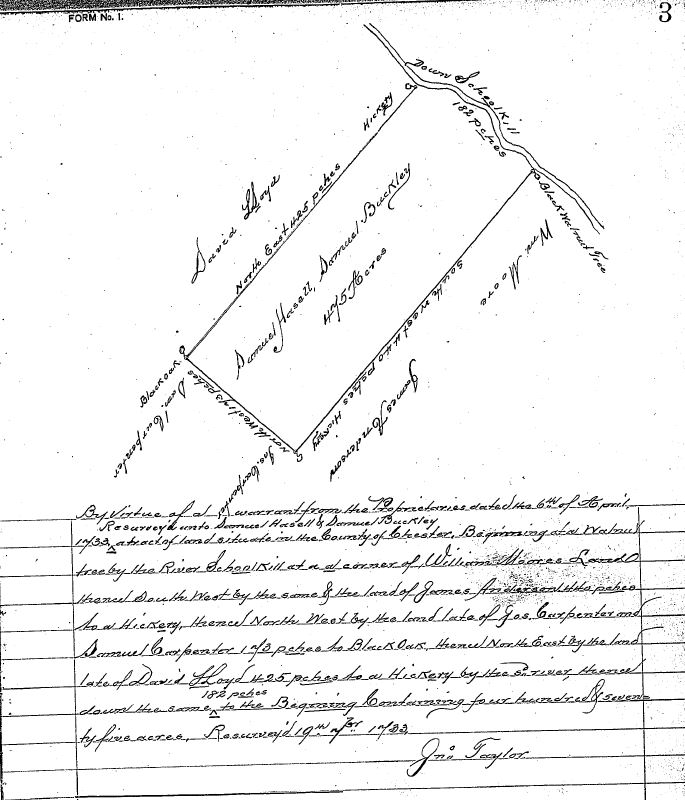 FORM No. 1.
3
Down Schoolkill
182 pches
Hickery
Black Walnut Tree
David Lloyd
North East 425 pches
Samuel Hasell, Samuel Buckley
475 Acres
South West 440 pches
Wm. Moore
Black Oak
North West 173 pches
Hickery
James Anderson
Sam. Carpenter
Jos. Carpenter
By Virtue of a warrant from the Proprietaries dated the 6th of April,
Resurvey'd unto Samuel Hasell & Samuel Buckley
1733, ^ a tract of land situate in the County of Chester, Beginning at a Walnut
tree by the River Schoolkill at a corner of William Moores Land
thence South West by the same & the land of James Anderson 440 pches
to a Hickery, thence North West by the land late of Jos. Carpenter and
Samuel Carpenter 173 pches to Black Oak, thence North East by the land
late of David Lloyd 425 pches to a Hickery by the sd. river, thence
182 pches
down the same ^ to the Begining Containing four hundred & seven=
ty five acres, Resurvey'd 19th 7br 1733
Jno. Taylor